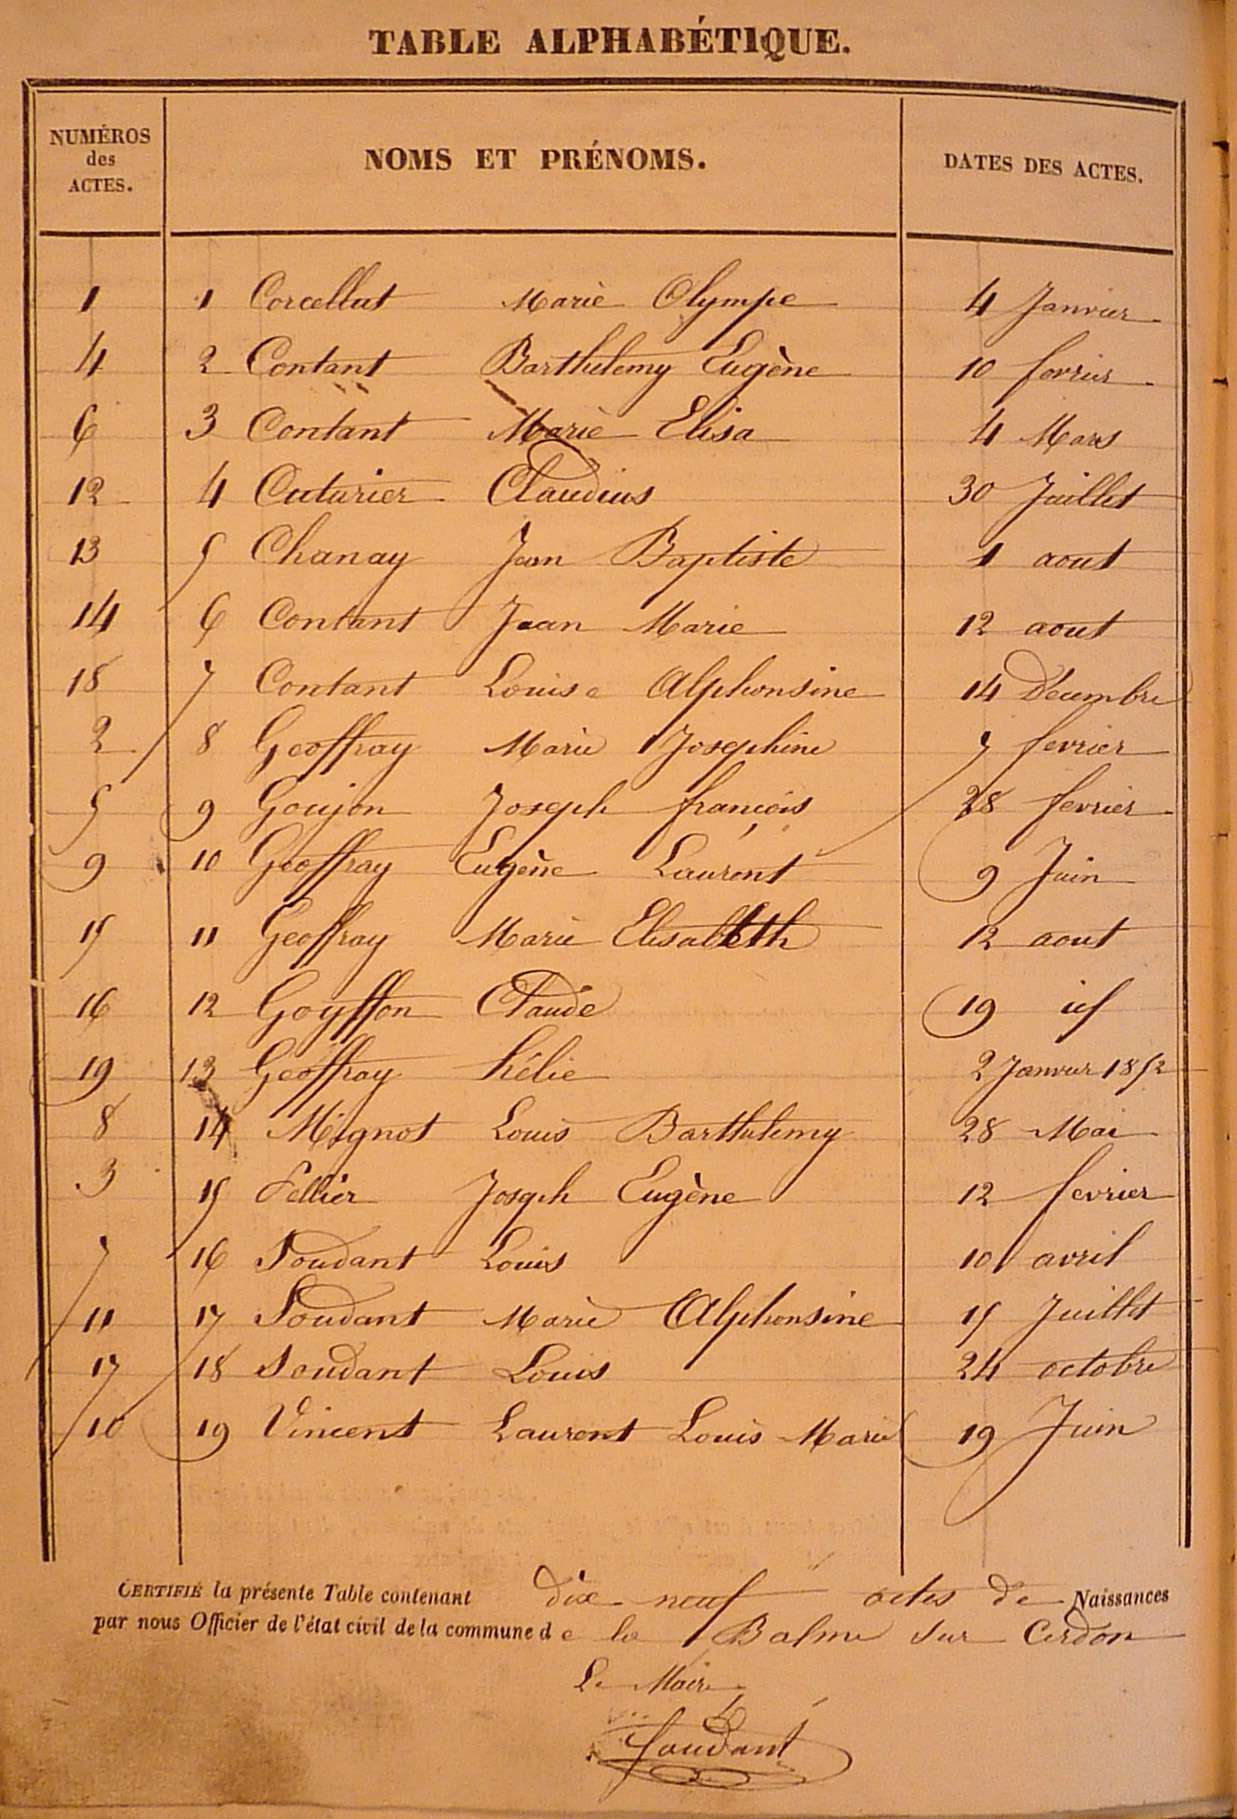 TABLE ALPHABÉTIQUE.
NUMÉROS des ACTES. NOMS ET PRÉNOMS. DATES DES ACTES.
1 1 Corcellut Marie Olympe 4 Janvier
4 2 Contant Barthelemy Eugène 10 fevrier
6 3 Contant Marie Elisa 4 Mars
12 4 Cuturier Claudius 30 Juillet
13 5 Chanay Jean Baptiste 1 aout
14 6 Contant Jean Marie 12 aout
18 7 Contant Louise Alphonsine 14 Decembre
2 8 Geoffray Marie Josephine 7 fevrier
5 9 Goujon Joseph françois 28 fevrier
9 10 Geoffray Eugène Laurent 9 Juin
15 11 Geoffray Marie Elisabeth 12 aout
16 12 Goyffon Claude 19
19 13 Geoffray hélie 2 Janvier 1852
8 14 Mignot Louis Barthelemy 28 Mai
3 15 Pellier Joseph Eugène 12 fevrier
7 16 Soudant Louis 10 avril
11 17 Soudant Marie Alphonsine 15 Juillet
17 18 Soudant Louis 24 octobre
10 19 Vincent Laurent Louis Marie 19 Juin
CERTIFIÉ la présente Table contenant dix neuf actes de Naissances
par nous Officier de l'état civil de la commune de la Balme sur Cerdon
Le Maire
Soudant